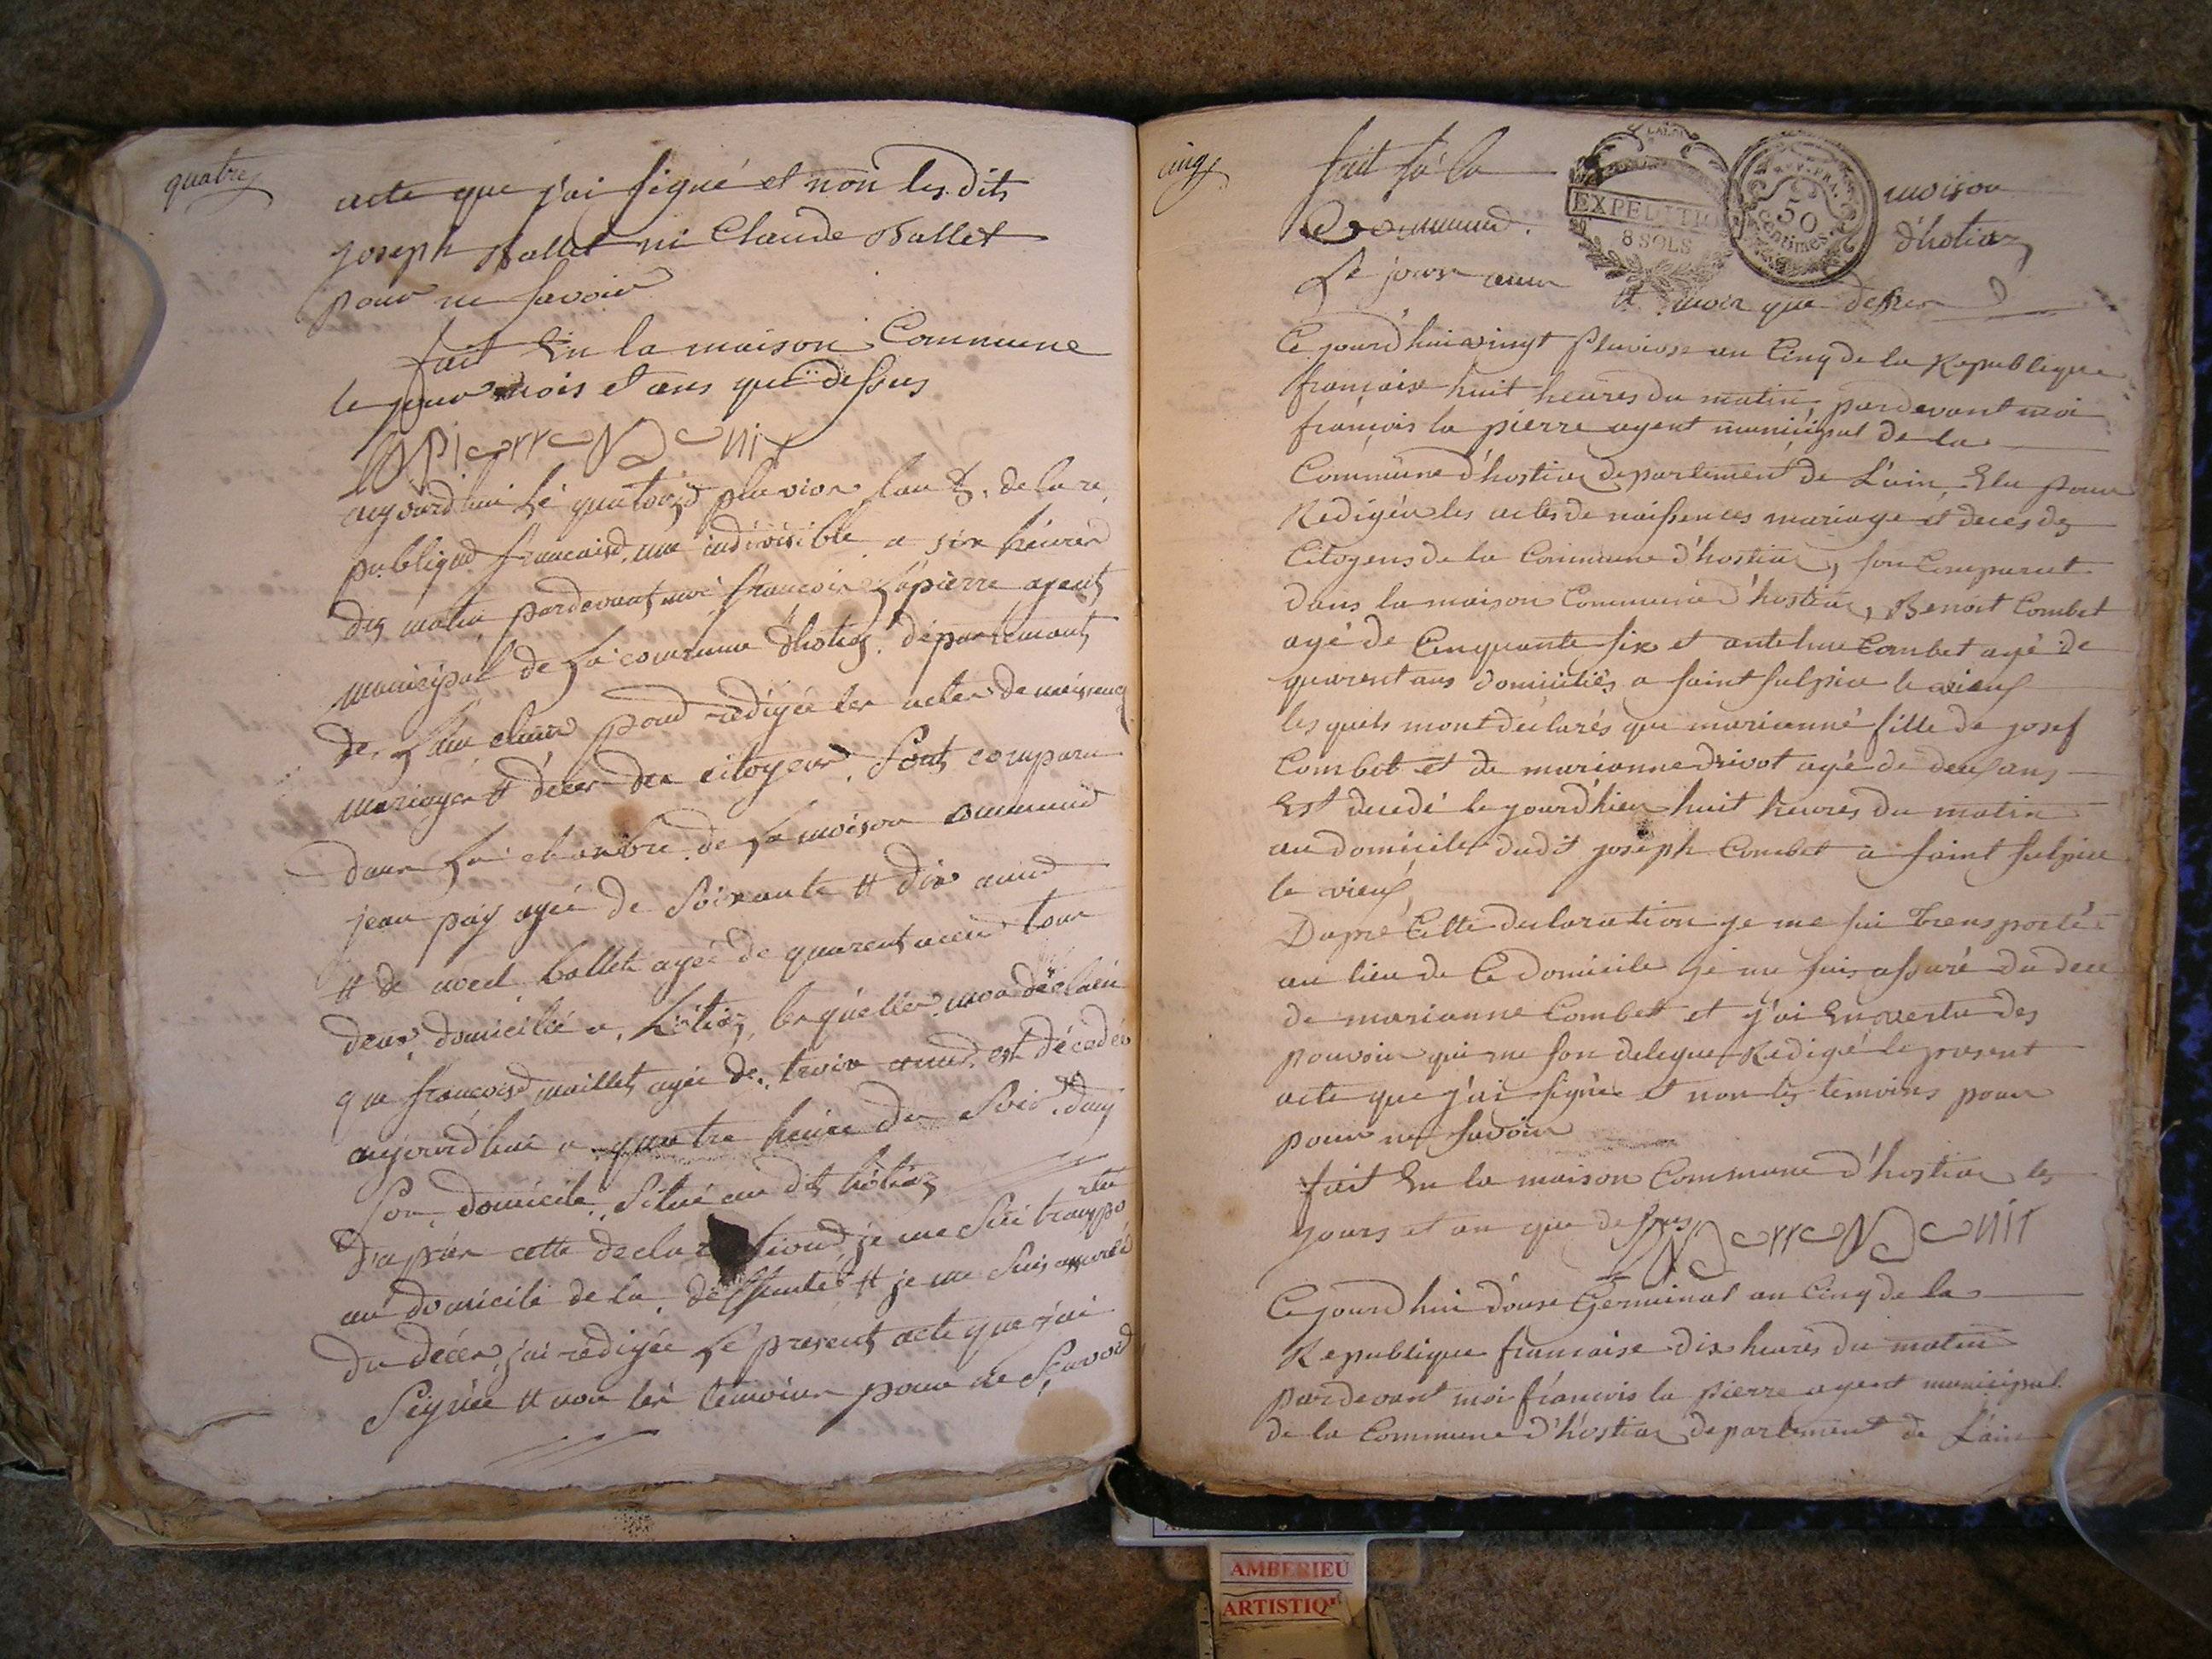 quatre
acte que j'ai signé et non les dits
joseph Ballet ni Claude Ballet
pour ne savoir
fait En la maison Commune
le jour mois et ans que dessus
lapierre
aujourd'hui lé quatorze pluviose lan 5. de la re
publique francaise une indivisible a six heures
du matin pardevant moi francois Lapierre agent
municipal de la commune d'hotiaz département
de Lain pour redigée les actes de
mariages et décès des citoyens. Sont comparu
dans la chambre de la maison commune
jean pay agée de Soixante et dix
et de ballet agée de quarent tous
deux domicilié a hotiaz, lesquelles mon déclaré
que francoise maillet agée de trois est décédée
aujourd'hui a quatre heures du Soir dans
Son domicile Situé au dit hotiaz
D'apres cette declaration je me Sui transpo
rter
au domicile de la deffunte et je me Suis assuré
du décès, j'ai redigée lé present acte que j'ai
Signée et non les témoins pour ne Savoir
cinq
fait En la maison
commune d'hotiaz
Le jour et mois que dessus
EXPEDITIO
8 SOLS
REP. FRA.
50
centimes
Ce jourd'hui vingt Pluviose an Cinq de la Republique
francaise huit heures du matin pardevant moi
francois la pierre agent municipal de la
Commune d'hostiaz departement de L'ain, Elu pour
Redigér les actes de naissences mariage et deces des
Citoyens de la Commune d'hostiaz, son Comparut
dans la maison Commune d'hostiaz, Benoit Combet
agé de Cinquante six et antelme Combet agé de
quarent ans domiciliés a saint sulpice le vieux
les quels mont déclarés que marianne fille de josef
Combet et de marianne drivot agé de deux ans
Est decedé le jourd'hier huit heures du matin
au domicile dudit joseph Combet a saint sulpice
le vieux,
Dapre Cette declaration je me sui Transporté
au lieu de Ce domicile je me suis assuré du dece
de marianne Combet et j'ai En vertu des
pouvoir qui me son delegue Redigé le present
acte que j'ai signé et non les temoins pour
pour ne savoir
fait En la maison Commune d'hostiaz les
jours et an que dessus
Ce jourd'hui douse Germinal an Cinq de la
Republique francaise dix heures du matin
pardevant moi francois la pierre agent municipal
de la Commune d'hostiaz departement de L'ain
AMBERIEU
ARTISTIQ